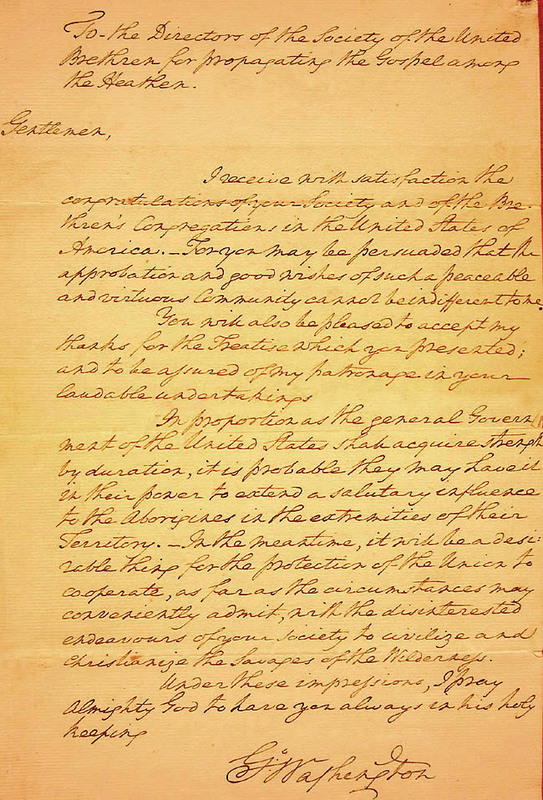 To the Directors of the Society of the United
Brethren for propagating the Gospel among
the Heathen.
Gentlemen,
I receive with satisfaction the
congratulations of your Society and of the Bre-
thren's Congregations in the United States of
America. – For you may be persuaded that the
approbation and good wishes of such a peaceable
and virtuous Community cannot be indifferent to me.
You will also be pleased to accept my
thanks for the Treatise which you presented;
and to be assured of my patronage in your
laudable undertakings
In proportion as the general Govern
ment of the United States shall acquire strength
by duration, it is probable they may have it
in their power to extend a salutary influence
to the Aborigines in the extremities of their
Territory. – In the meantime, it will be a desi:
rable thing for the protection of the Union to
cooperate, as far as the circumstances may
conveniently admit, with the disinterested
endeavours of your Society to civilize and
Christianize the Savages of the Wilderness.
Under these impressions, I pray
Almighty God to have you always in his holy
keeping
Go: Washington